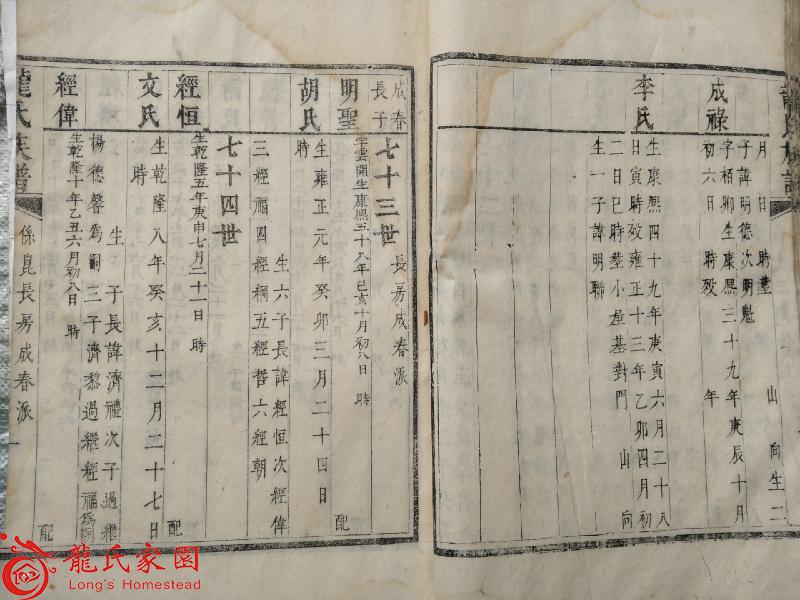 月 日 時塟 山 向生二
子諱明德次明魁
成祿 字相卿生康熙三十九年庚辰十月
初六日 時殁 年
李氏 生康熙四十九年庚寅六月二十八
日寅時殁雍正十三年乙卯四月初
二日巳時塟小壟基對門 山 向
生一子諱明聯
七十三世 長房成春派
成春長子
明聖 字雲開生康熙五十八年已亥十月初八日 時 配
胡氏 生雍正元年癸卯三月二十四日
時 生六子長諱經恒次經偉
三經福四經稠五經哲六經朝
七十四世
經恒 生乾隆五年庚申七月二十一日 時 配
文氏 生乾隆八年癸亥十二月二十七日
時 生 子長諱濟禮次子過繼
楊德馨為嗣三子濟黎過繼經福為嗣
經偉 生乾隆十年乙丑六月初八日 時 配
龍氏族譜 係崑長房成春派 一
龍氏家園
Long's Homestead